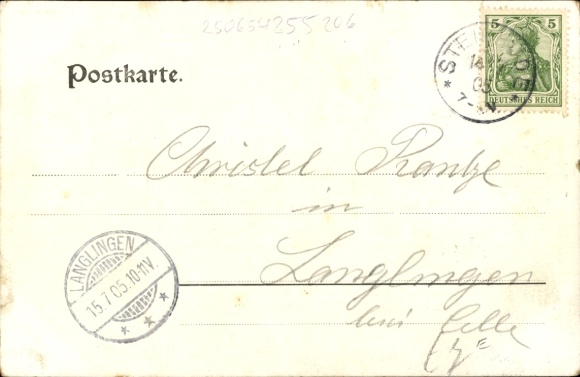 250654355 206
5 5
DEUTSCHES REICH
14
05
7-
Postkarte.
Christel
in
Langlingen
bei Celle
LANGLINGEN
15.7.05.10-11V.